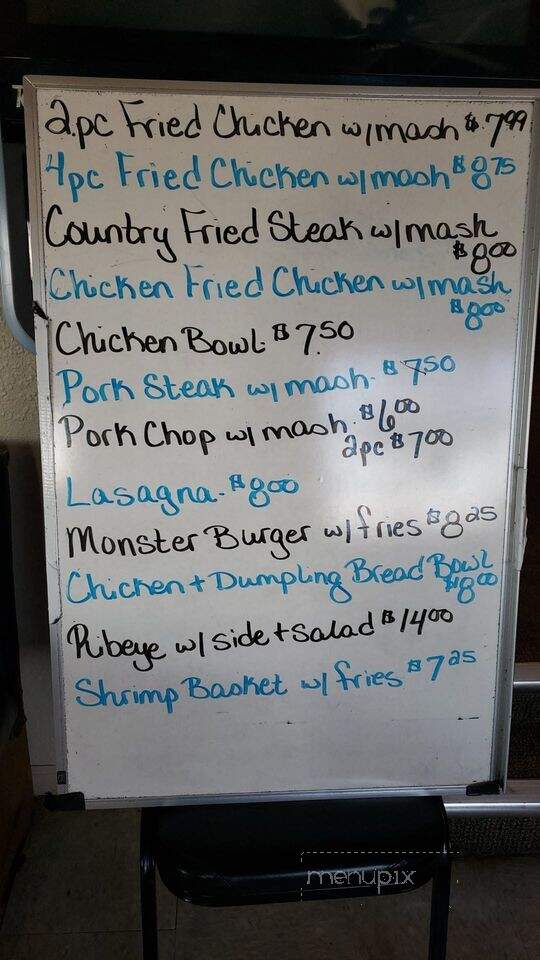 2pc Fried Chicken w/mash $7.99
4pc Fried Chicken w/mash $8.75
Country Fried Steak w/mash
$8.00
Chicken Fried Chicken w/mash
$8.00
Chicken Bowl. $7.50
Pork Steak w/ mash. $7.50
Pork Chop w/ mash. $6.00
2pc $7.00
Lasagna. $8.00
Monster Burger w/fries $8.25
Chicken + Dumpling Bread Bowl
$8.00
Ribeye w/ side + salad $14.00
Shrimp Basket w/ fries $7.25
menupix